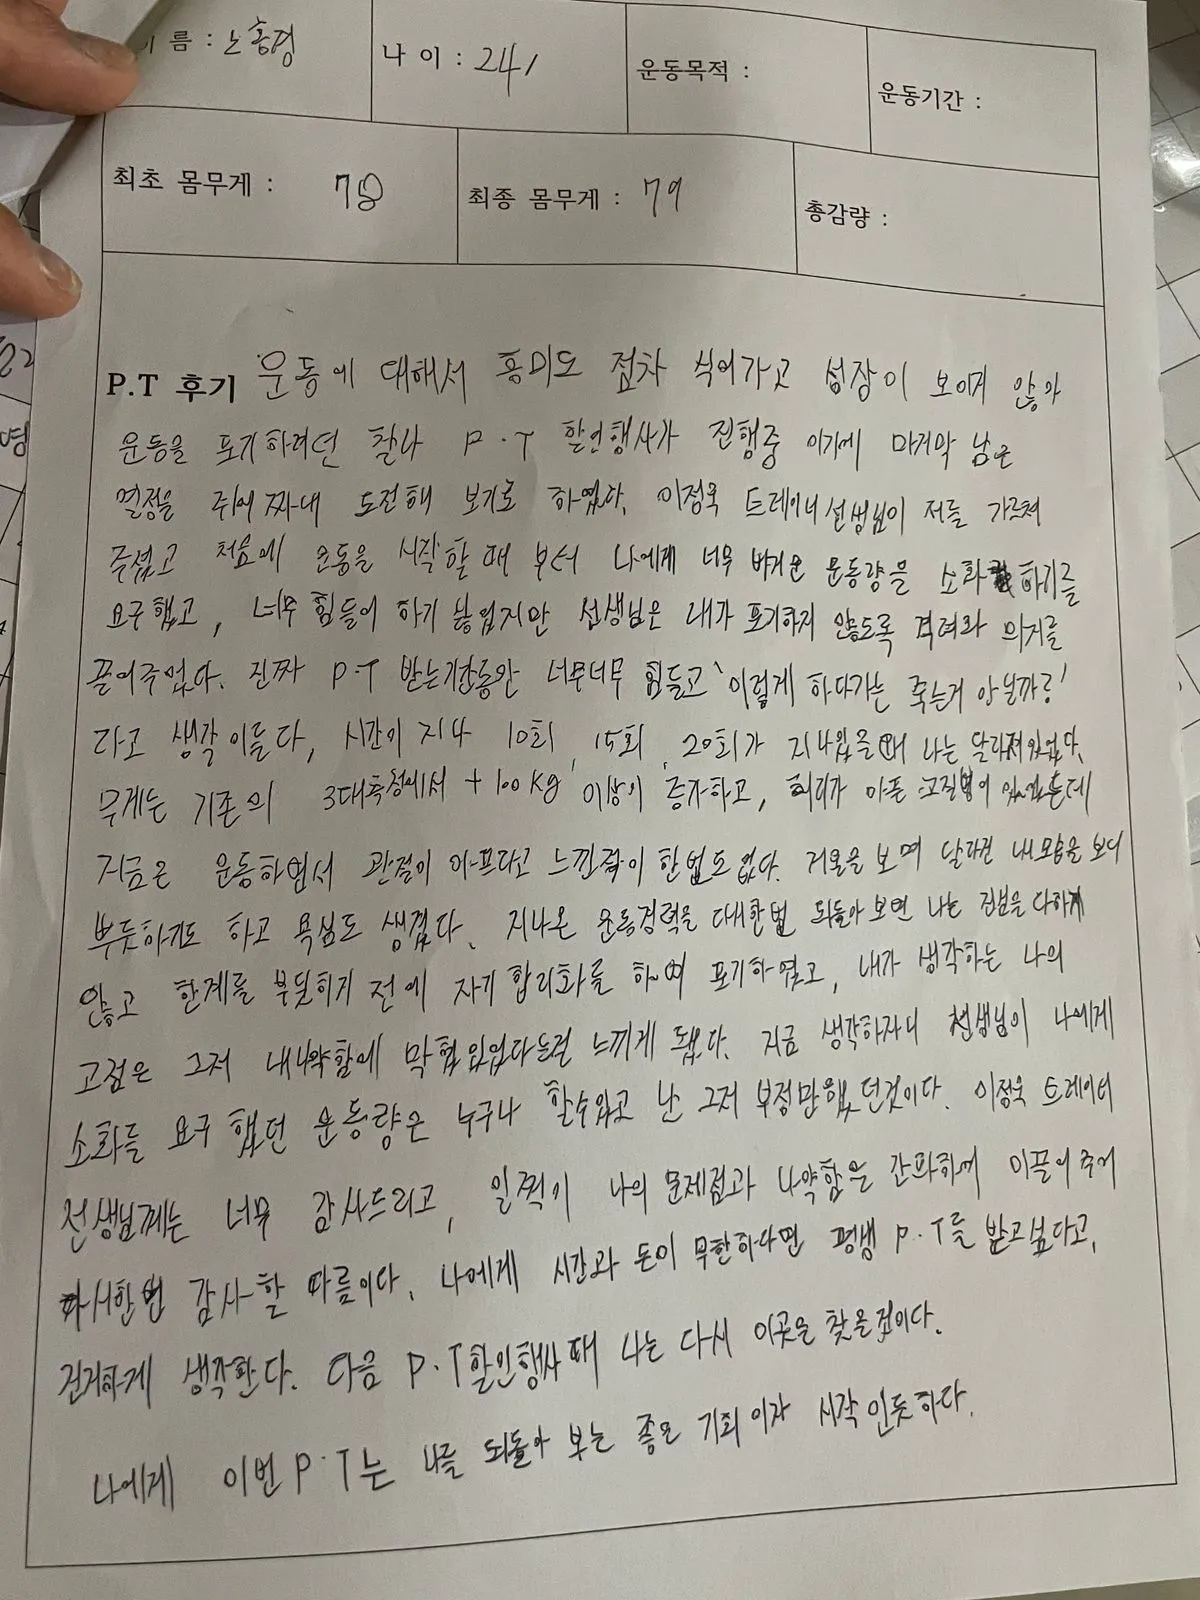 이름 : 노홍명
나 이 : 24
운동목적 :
운동기간 :
최초 몸무게 : 78
최종 몸무게 : 79
총감량 :
P.T 후기 운동에 대해서 흥미도 점차 식어가고 성장이 보이지 않아
운동을 포기하려던 찰나 P.T 할인행사가 진행중 이기에 마지막 남은
열정을 쥐어 짜내 도전해 보기로 하였다. 이정욱 트레이너 선생님이 저를 가르쳐
주셨고 처음에 운동을 시작할 때 부터 나에게 너무 버거운 운동량을 소화 하기를
요구했고, 너무 힘들어 하기 싫었지만 선생님은 내가 포기하지 않도록 격려와 의지를
끌어주었다. 진짜 P.T 받는기간동안 너무너무 힘들고 '이렇게 하다가는 죽는거 아닐까?'
라고 생각이들다, 시간이 지나 10회, 15회, 20회가 지나있을때 나는 달라져있었다.
무게는 기존의 3대측정에서 +100kg 이상이 증가하고, 허리가 아픈 고질병이 있었는데
지금은 운동하면서 관절이 아프다고 느낀적이 한번도 없다. 거울을 보며 달라진 내모습을 보니
뿌듯하기도 하고 욕심도 생겼다. 지나온 운동경력을 다시한번 되돌아 보면 나는 진심을 다하지
않고 한계를 부딪히기 전에 자기 합리화를 하며 포기하였고, 내가 생각하는 나의
고점은 그저 내 나약함에 막혀있었다는걸 느끼게 됐다. 지금 생각하자니 선생님이 나에게
소화를 요구 했던 운동량은 누구나 할수있고 난 그저 부정만했던것이다. 이정욱 트레이너
선생님께는 너무 감사드리고, 일찍이 나의 문제점과 나약함을 간파하여 이끌어 주어
다시한번 감사할 따름이다. 나에게 시간과 돈이 무한하다면 평생 P.T를 받고싶다고,
진지하게 생각한다. 다음 P.T할인행사때 나는 다시 이곳을 찾을것이다.
나에게 이번 P.T는 나를 되돌아 보는 좋은 기회이자 시작인듯하다.